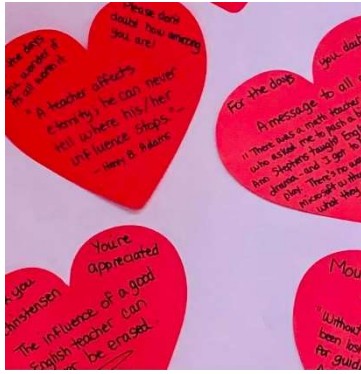 the days
you wonder if
its all worth it
Please don't
doubt how amazing
you are!
"A teacher affects
eternity; he can never
tell where his/her
influence stops."
- Henry B. Adams
For the days
you doubt
A message to all
"There was a math teacher
who asked me to
Ann Stephens taught
drama - and I got to
play. There's no
Microsoft without
what they
you
Christensen
You're
appreciated
The influence of a good
English teacher can
be erased.
Mou
"Without
been
for guid